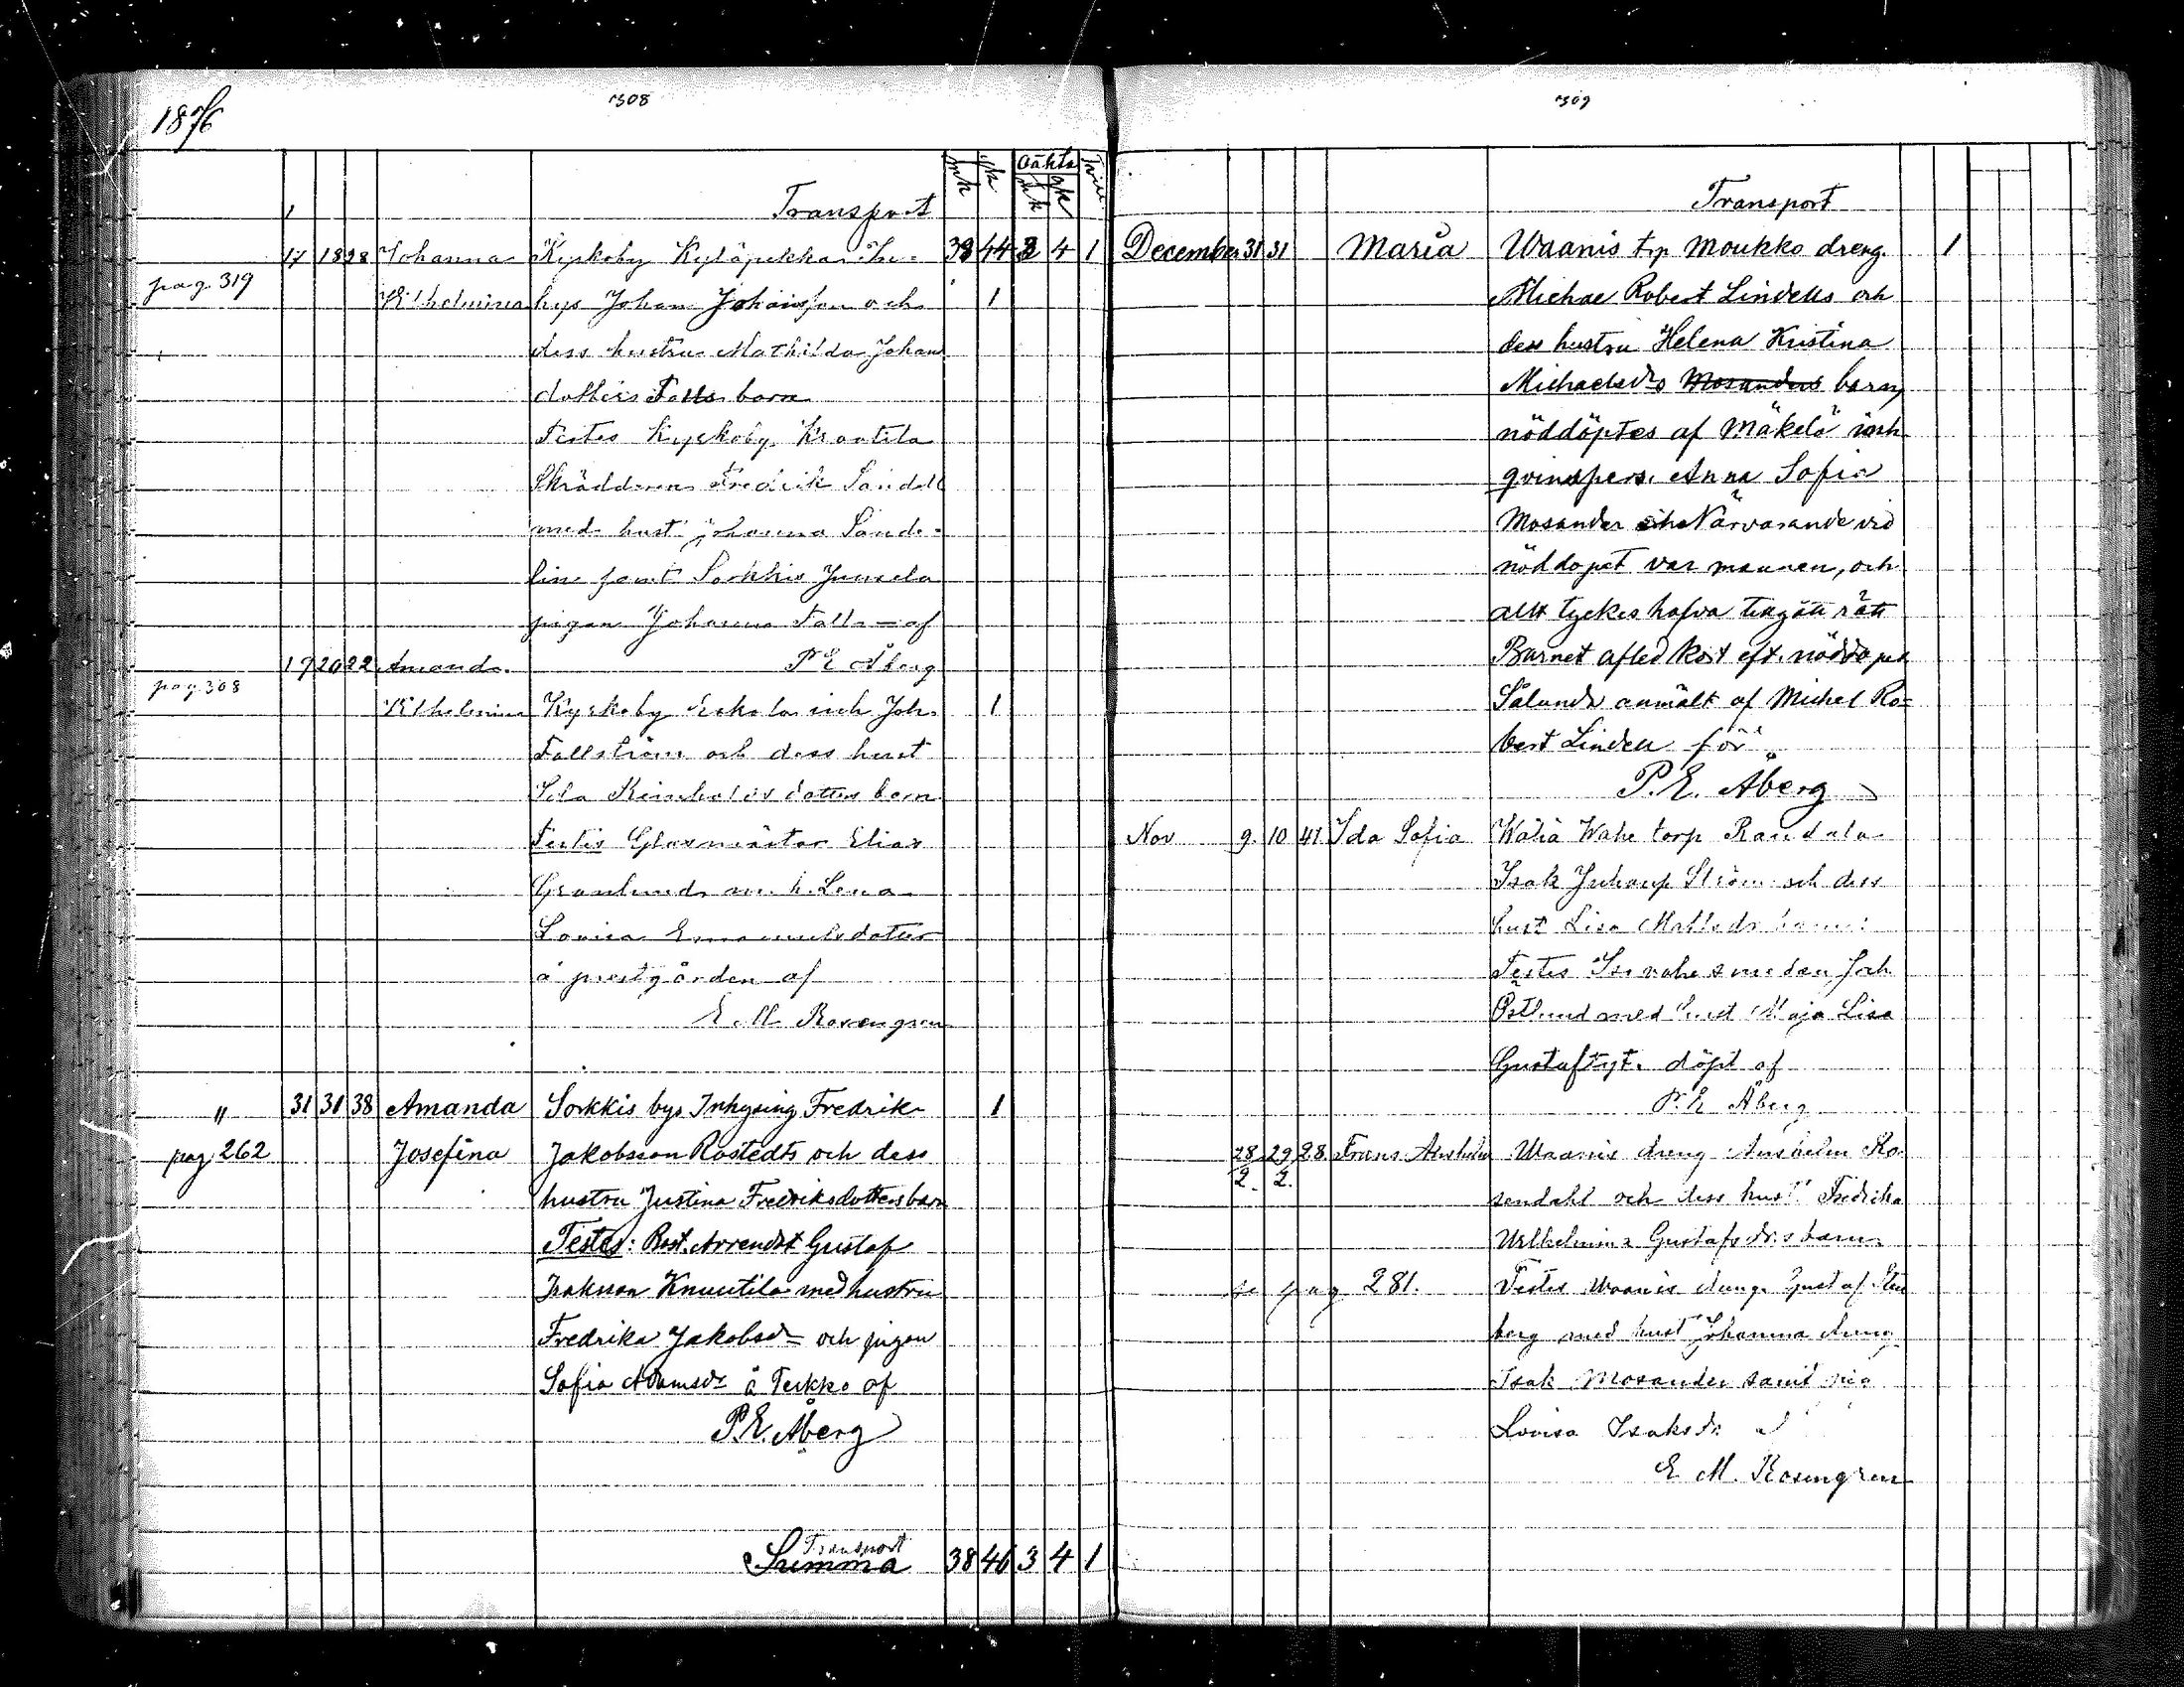 1876
308
mk qk Oäkta mk qk
Transport
17 18 28 Johanna Kyrkoby Kyläpekka In- 38 44 3 4 1
pag. 319
Wilhelmina hys Johan Johansson och 1
dess hustru Mathilda Johans
dotters Falls barn
Testes Kyrkoby Krootila
Skräddaren Fredrik Sandell
med hust Johanna Sande-
lin samt Sorkkis Juusela
pigan Johanna Fall af
17 20 22 Amanda P E Åberg
pag. 308
Wilhelmina Kyrkoby Eskola inh Joh. 1
Fallström och dess hust
Reinholds dotters barn
Testis Glasmästar Elias
Granlund m. h. Lena
Lovisa Emanuelsdotter
å prestgården af
E M Rosengren
" 31 31 38 Amanda Sorkkis bys Inhysing Fredrik 1
pag 262 Josefina Jakobsson Rostedts och dess
hustru Justina Fredriksdotters barn
Testes: Rust. Arrendat Gustaf
Isaksson Knuutila med hustru
Fredrika Jakobsdr och pigan
Sofia Adamsdr å Teikko af
P.E. Åberg
Transport
Summa 38 46 3 4 1
309
Transport
December 31 31 Maria Waanis trp Moukko dreng. 1
Michae Robert Lindells och
dess hustru Helena Kristina
Michaelsdrs Mosanders barn,
nöddöptes af Mäkelä inh
qvinspers. Anna Sofia
Mosander Närvarande vid
nöddopet var mannen, och
allt tyckes hafva tillgått rätt
Barnet afled kort eft. nöddopet
Sålunda anmält af Michel Ro=
bert Lindell för
P. E. Åberg
Nov 9. 10 41 Ida Sofia Käliä Wahe torp Randala
Isak Ström och dess
hust Lisa Mattsdr barn:
Testes smeden Joh
Östlund med hust Maja Lisa
Gustafsdr. döpt af
P. E Åberg
28/2. 29/2. 28. Frans Anshelm Waanis dreng Anshelm Ro-
sendahl och dess hust Fredrika
Wilhelmina Gustafsdrs barn.
se pag 281. Testes Waanis dreng. Gustaf Sten
berg med hust Johanna dreng
Isak Mosander samt pig
Lovisa Isaksdr
E M. Rosengren